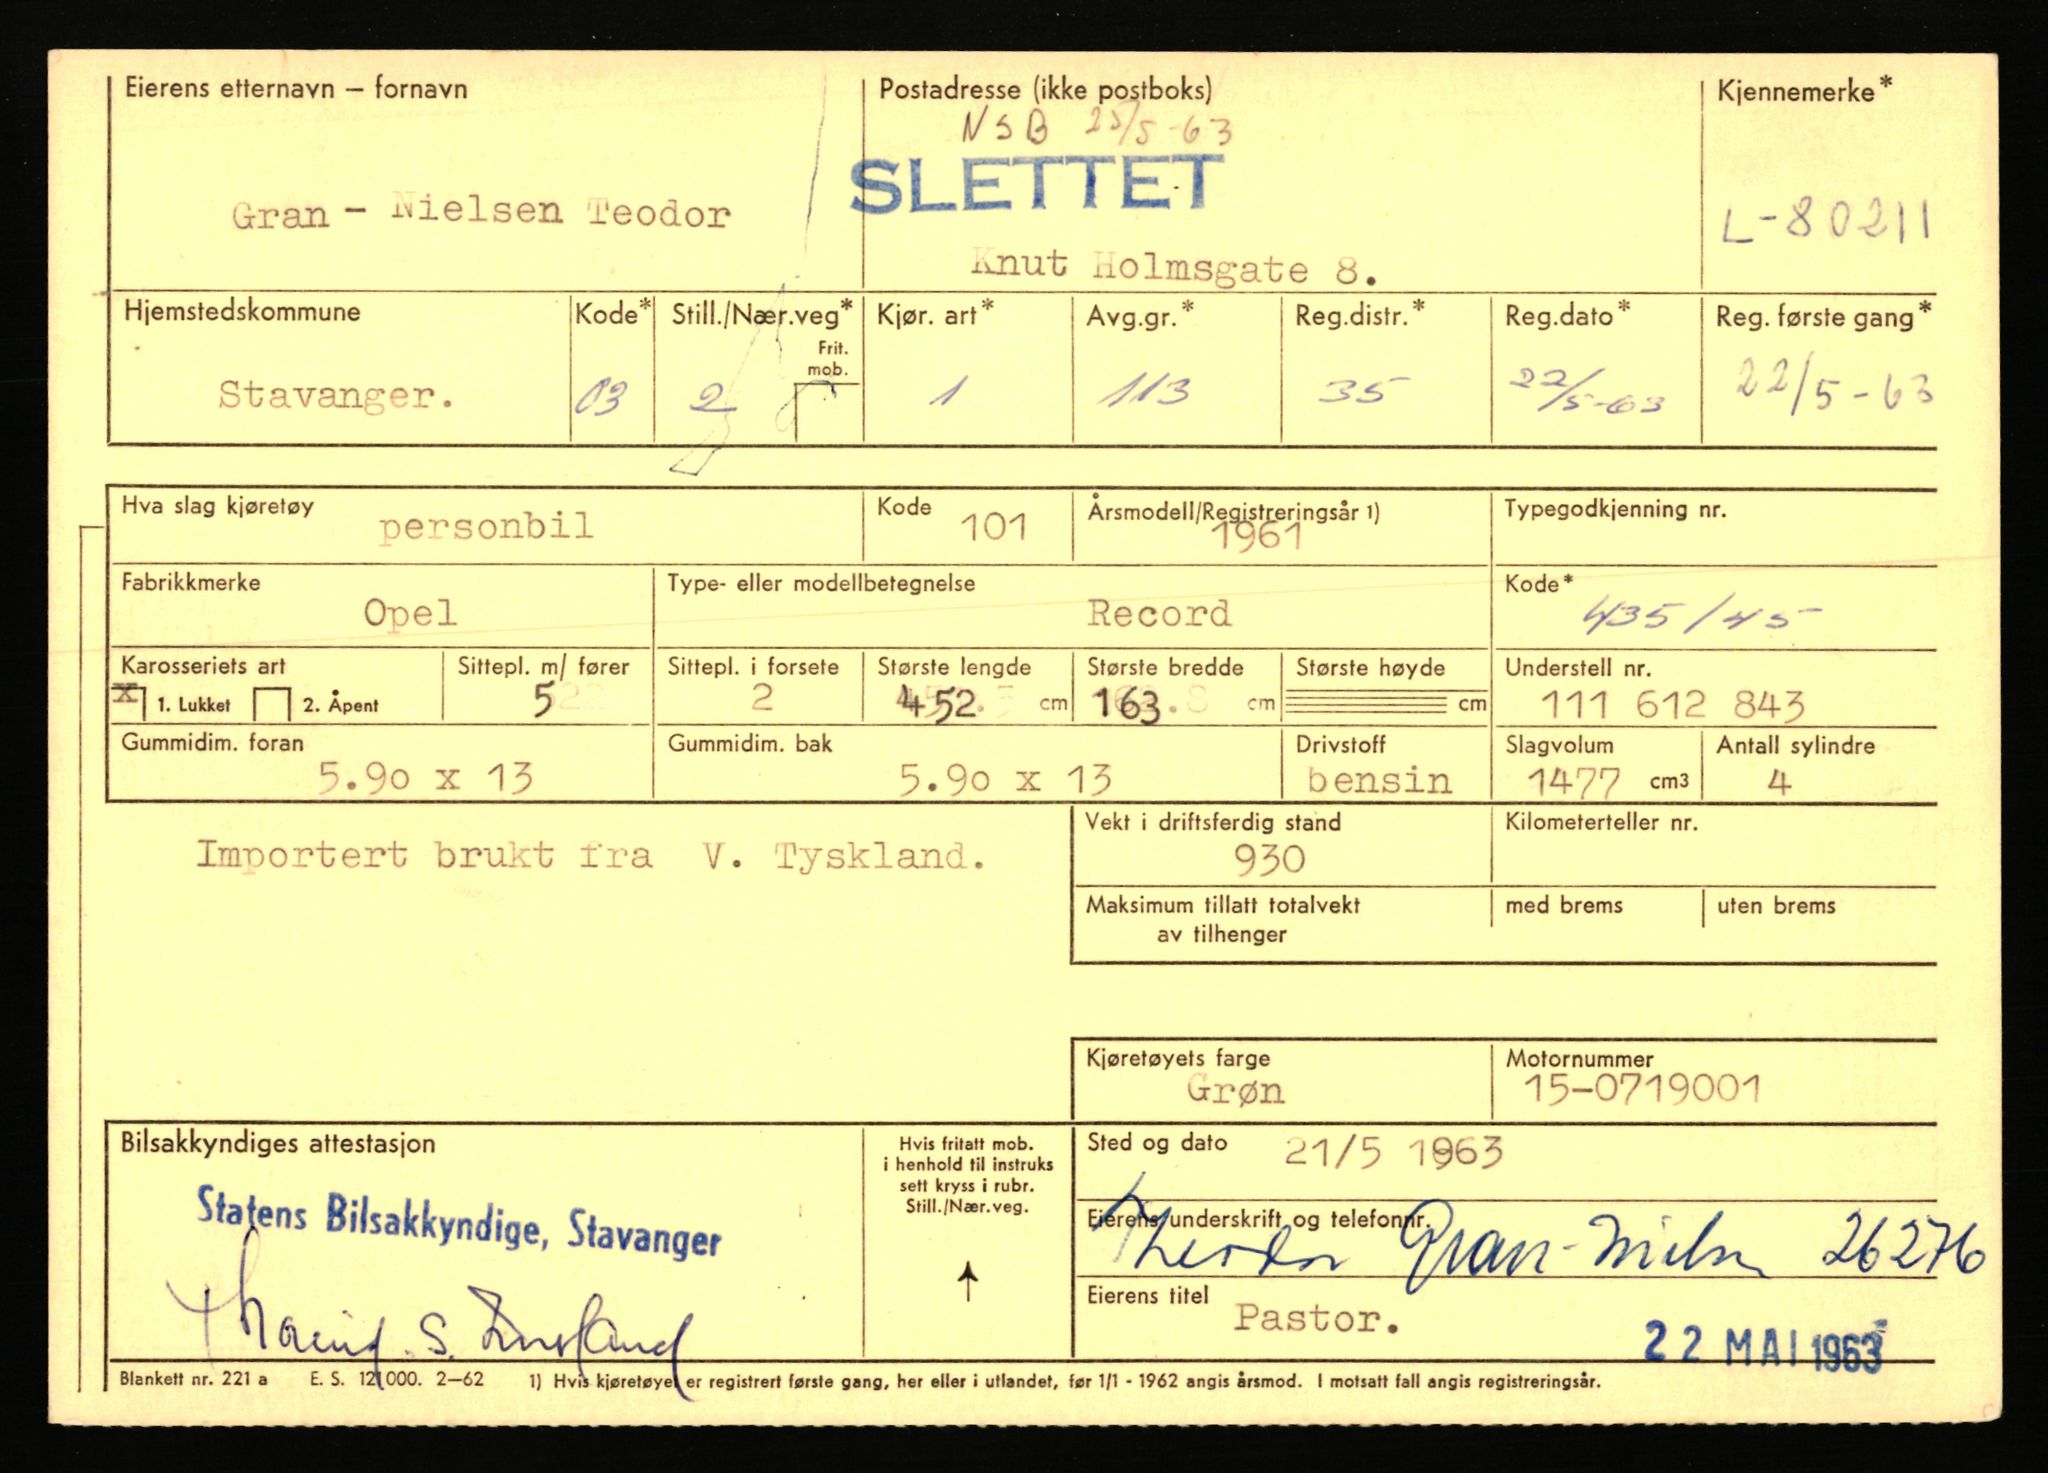 Eierens etternavn – fornavn
Postadresse (ikke postboks)
Kjennemerke*
NSB 25/5-63
SLETTET
Gran - Nielsen Teodor
L-80211
Knut Holmsgate 8.
Hjemstedskommune
Kode*
Still./Nær.veg*
Frit. mob.
Kjør. art*
Avg.gr.*
Reg.distr.*
Reg.dato*
Reg. første gang*
Stavanger.
03
2
1
113
35
22/5-63
22/5-63
Hva slag kjøretøy
personbil
Kode
101
Årsmodell/Registreringsår 1)
1961
Typegodkjenning nr.
Fabrikkmerke
Opel
Type- eller modellbetegnelse
Record
Kode*
435/45
Karosseriets art
x 1. Lukket 2. Åpent
Sittepl. m/ fører
5
Sittepl. i forsete
2
Største lengde
452 cm
Største bredde
163 cm
Største høyde
cm
Understell nr.
111 612 843
Gummidim. foran
5.90 x 13
Gummidim. bak
5.90 x 13
Drivstoff
bensin
Slagvolum
1477 cm3
Antall sylindre
4
Importert brukt fra V. Tyskland.
Vekt i driftsferdig stand
930
Kilometerteller nr.
Maksimum tillatt totalvekt
av tilhenger
med brems
uten brems
Kjøretøyets farge
Grøn
Motornummer
15-0719001
Bilsakkyndiges attestasjon
Statens Bilsakkyndige, Stavanger
Hvis fritatt mob.
i henhold til instruks
sett kryss i rubr.
Still./Nær.veg.
Sted og dato
21/5 1963
Eierens underskrift og telefonnr.
Theodor Gran-Nielsen 26276
Eierens titel
Pastor.
22 MAI 1963
Blankett nr. 221 a E. S. 121000. 2–62 1) Hvis kjøretøyet er registrert første gang, her eller i utlandet, før 1/1 - 1962 angis årsmod. I motsatt fall angis registreringsår.